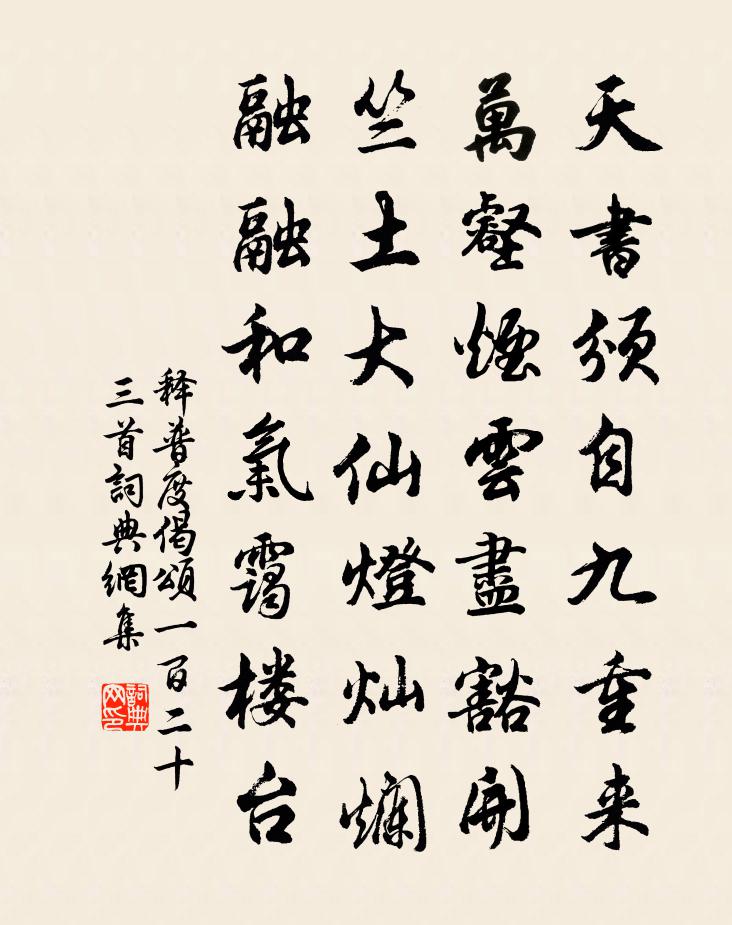 天書頒自九重来
萬壑煙雲盡豁開
竺土大仙燈灿爛
融融和氣靄楼台
释普度偈頌一百二十
三首詞典網集
詞典网印